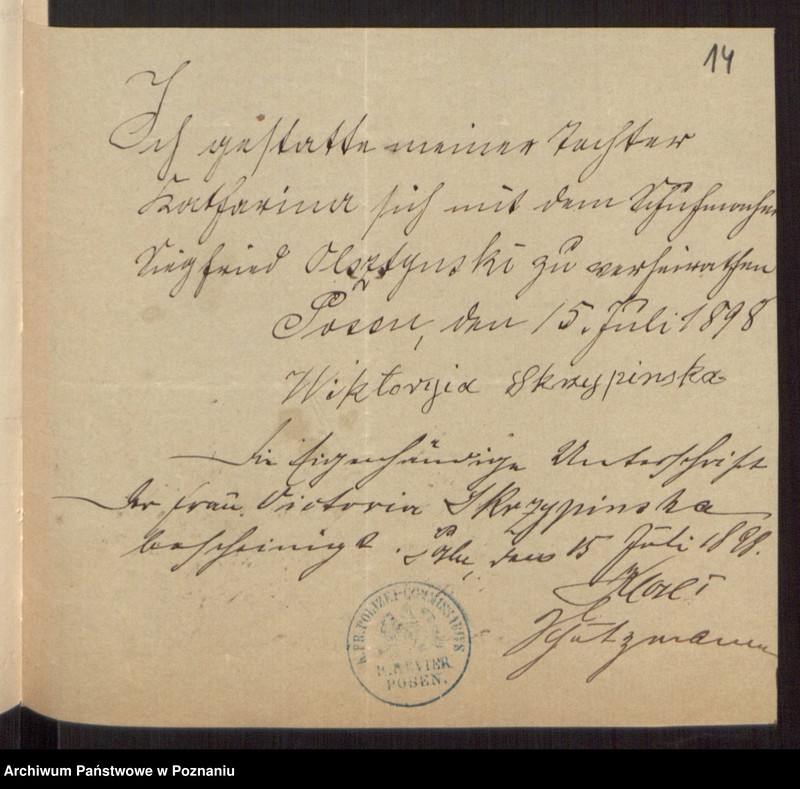 14
Ich gestatte meiner Tochter
Katharina sich mit dem Schuhmacher
Siegfried Olsztynski zu verheirathen
Posen, den 15. Juli 1898
Wiktoryia Skrzypinska
Die Eigenhändige Unterschrift
der Frau Victoria Skrzypinska
bescheinigt. Posen, den 15 Juli 1898.
Schutzmann
K. PR. POLIZEI-COMMISSARIUS
REVIER
POSEN.
Archiwum Państwowe w Poznaniu